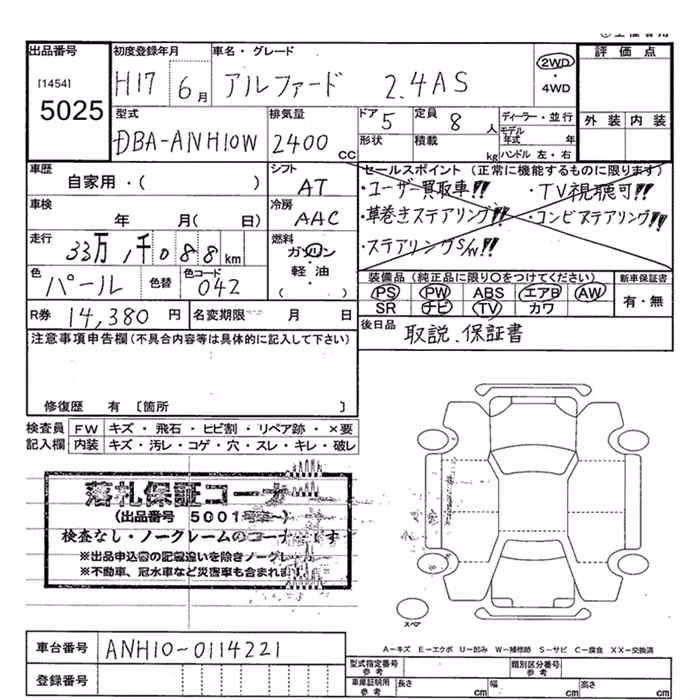 出品番号 初度登録年月 車名・グレード 評価点
[1454] H17 6月 アルファード 2.4AS 2WD・4WD
5025
型式 排気量 ドア 定員 ディーラー・並行 外装 内装
DBA-ANH10W 2400CC 5 8人 モデル年式 年
形状 積載 kg ハンドル 左・右
車歴 シフト セールスポイント (正常に機能するものに限ります)
自家用・( ) AT ・ユーザー買取車!! ・TV視聴可!!
車検 冷房 ・革巻きステアリング!! ・コンビステアリング!!
年 月( 日) AAC
走行 燃料 ・ステアリングS/W!!
33万,千088km ガソリン
軽・油
( )
色 色替 色コード 装備品 (純正品に限り○をつけてください) 新車保証書
パール 042 PS PW ABS エアB AW 有・無
SR ナビ TV カワ
R券 14,380円 名変期限 月 日 後日品 取説、保証書
注意事項申告欄(不具合内容等は具体的に記入して下さい)
修復歴 有 〔箇所 〕
検査員 FW キズ・飛石・ヒビ割・リペア跡・×要
記入欄 内装 キズ・汚レ・コゲ・穴・スレ・キレ・破レ
落札保証コーナー
(出品番号 5001号車~)
検査なし・ノークレームのコーナーです
※出品申込書の記載違いを除きノークレーム
※不動車、冠水車など災害車も含まれます
スペア
車台番号 ANH10-0114221 A-キズ E-エクボ U-凹み W-補修跡 S-サビ C-腐食 XX-交換済
登録番号 型式指定番号 参考 類別区分番号 参考
車庫証明用 参考 長さ cm 幅 cm 高さ cm